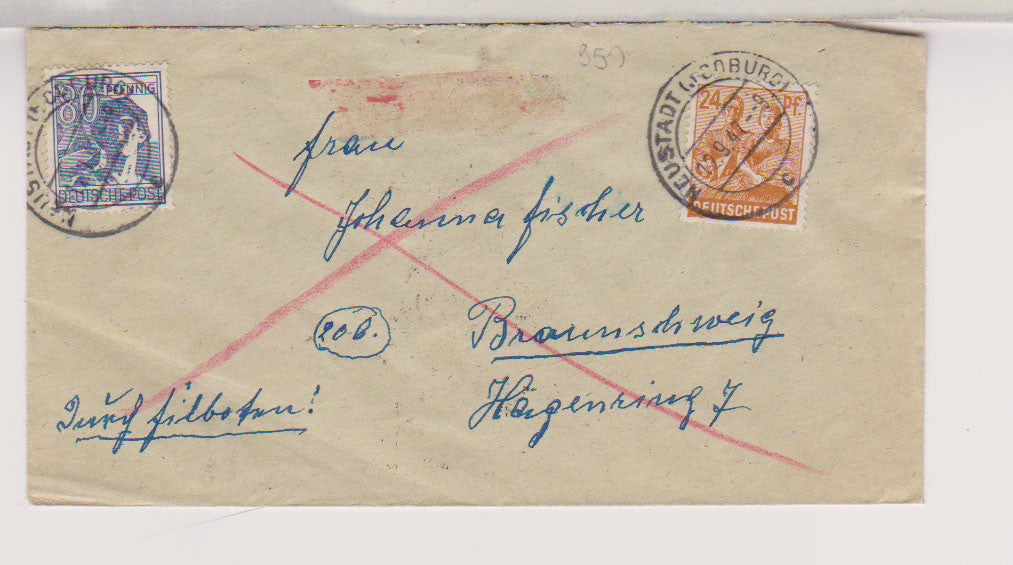 350
80 PFENNIG
DEUTSCHE POST
NEUSTADT (b. COBURG)
24 Pf.
DEUTSCHE POST
NEUSTADT (b. COBURG)
12.9.47
c
Frau
Johanna Fischer
20b.
Braunschweig
Hägenring 7
Durch Eilboten!